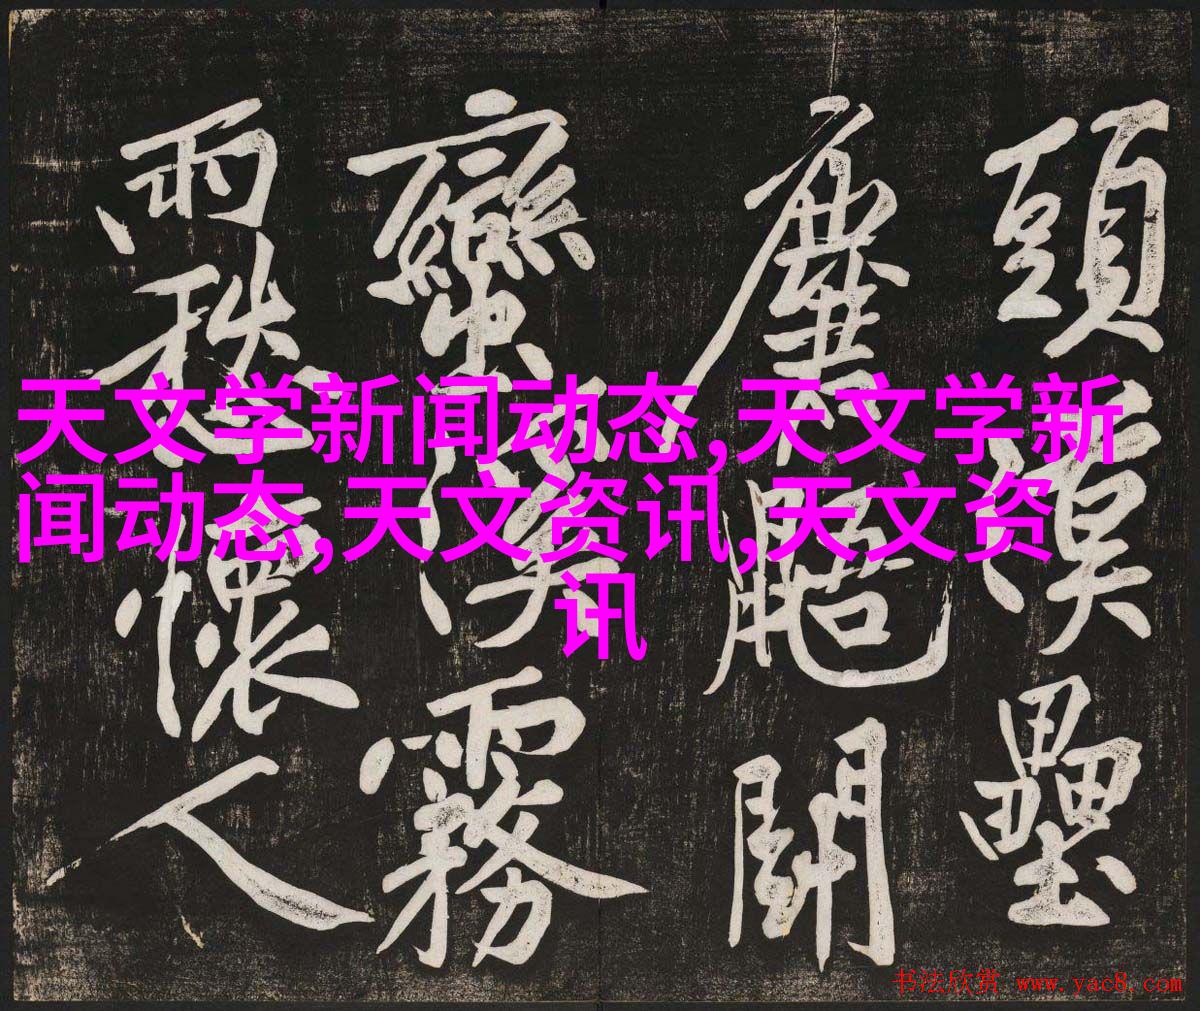 頭漢壘
麏鼯鬭
蠻溪霧
雨愁懷人
天文学新闻动态,天文学新
闻动态,天文资讯,天文资
讯
书法欣赏 www.yac8.com